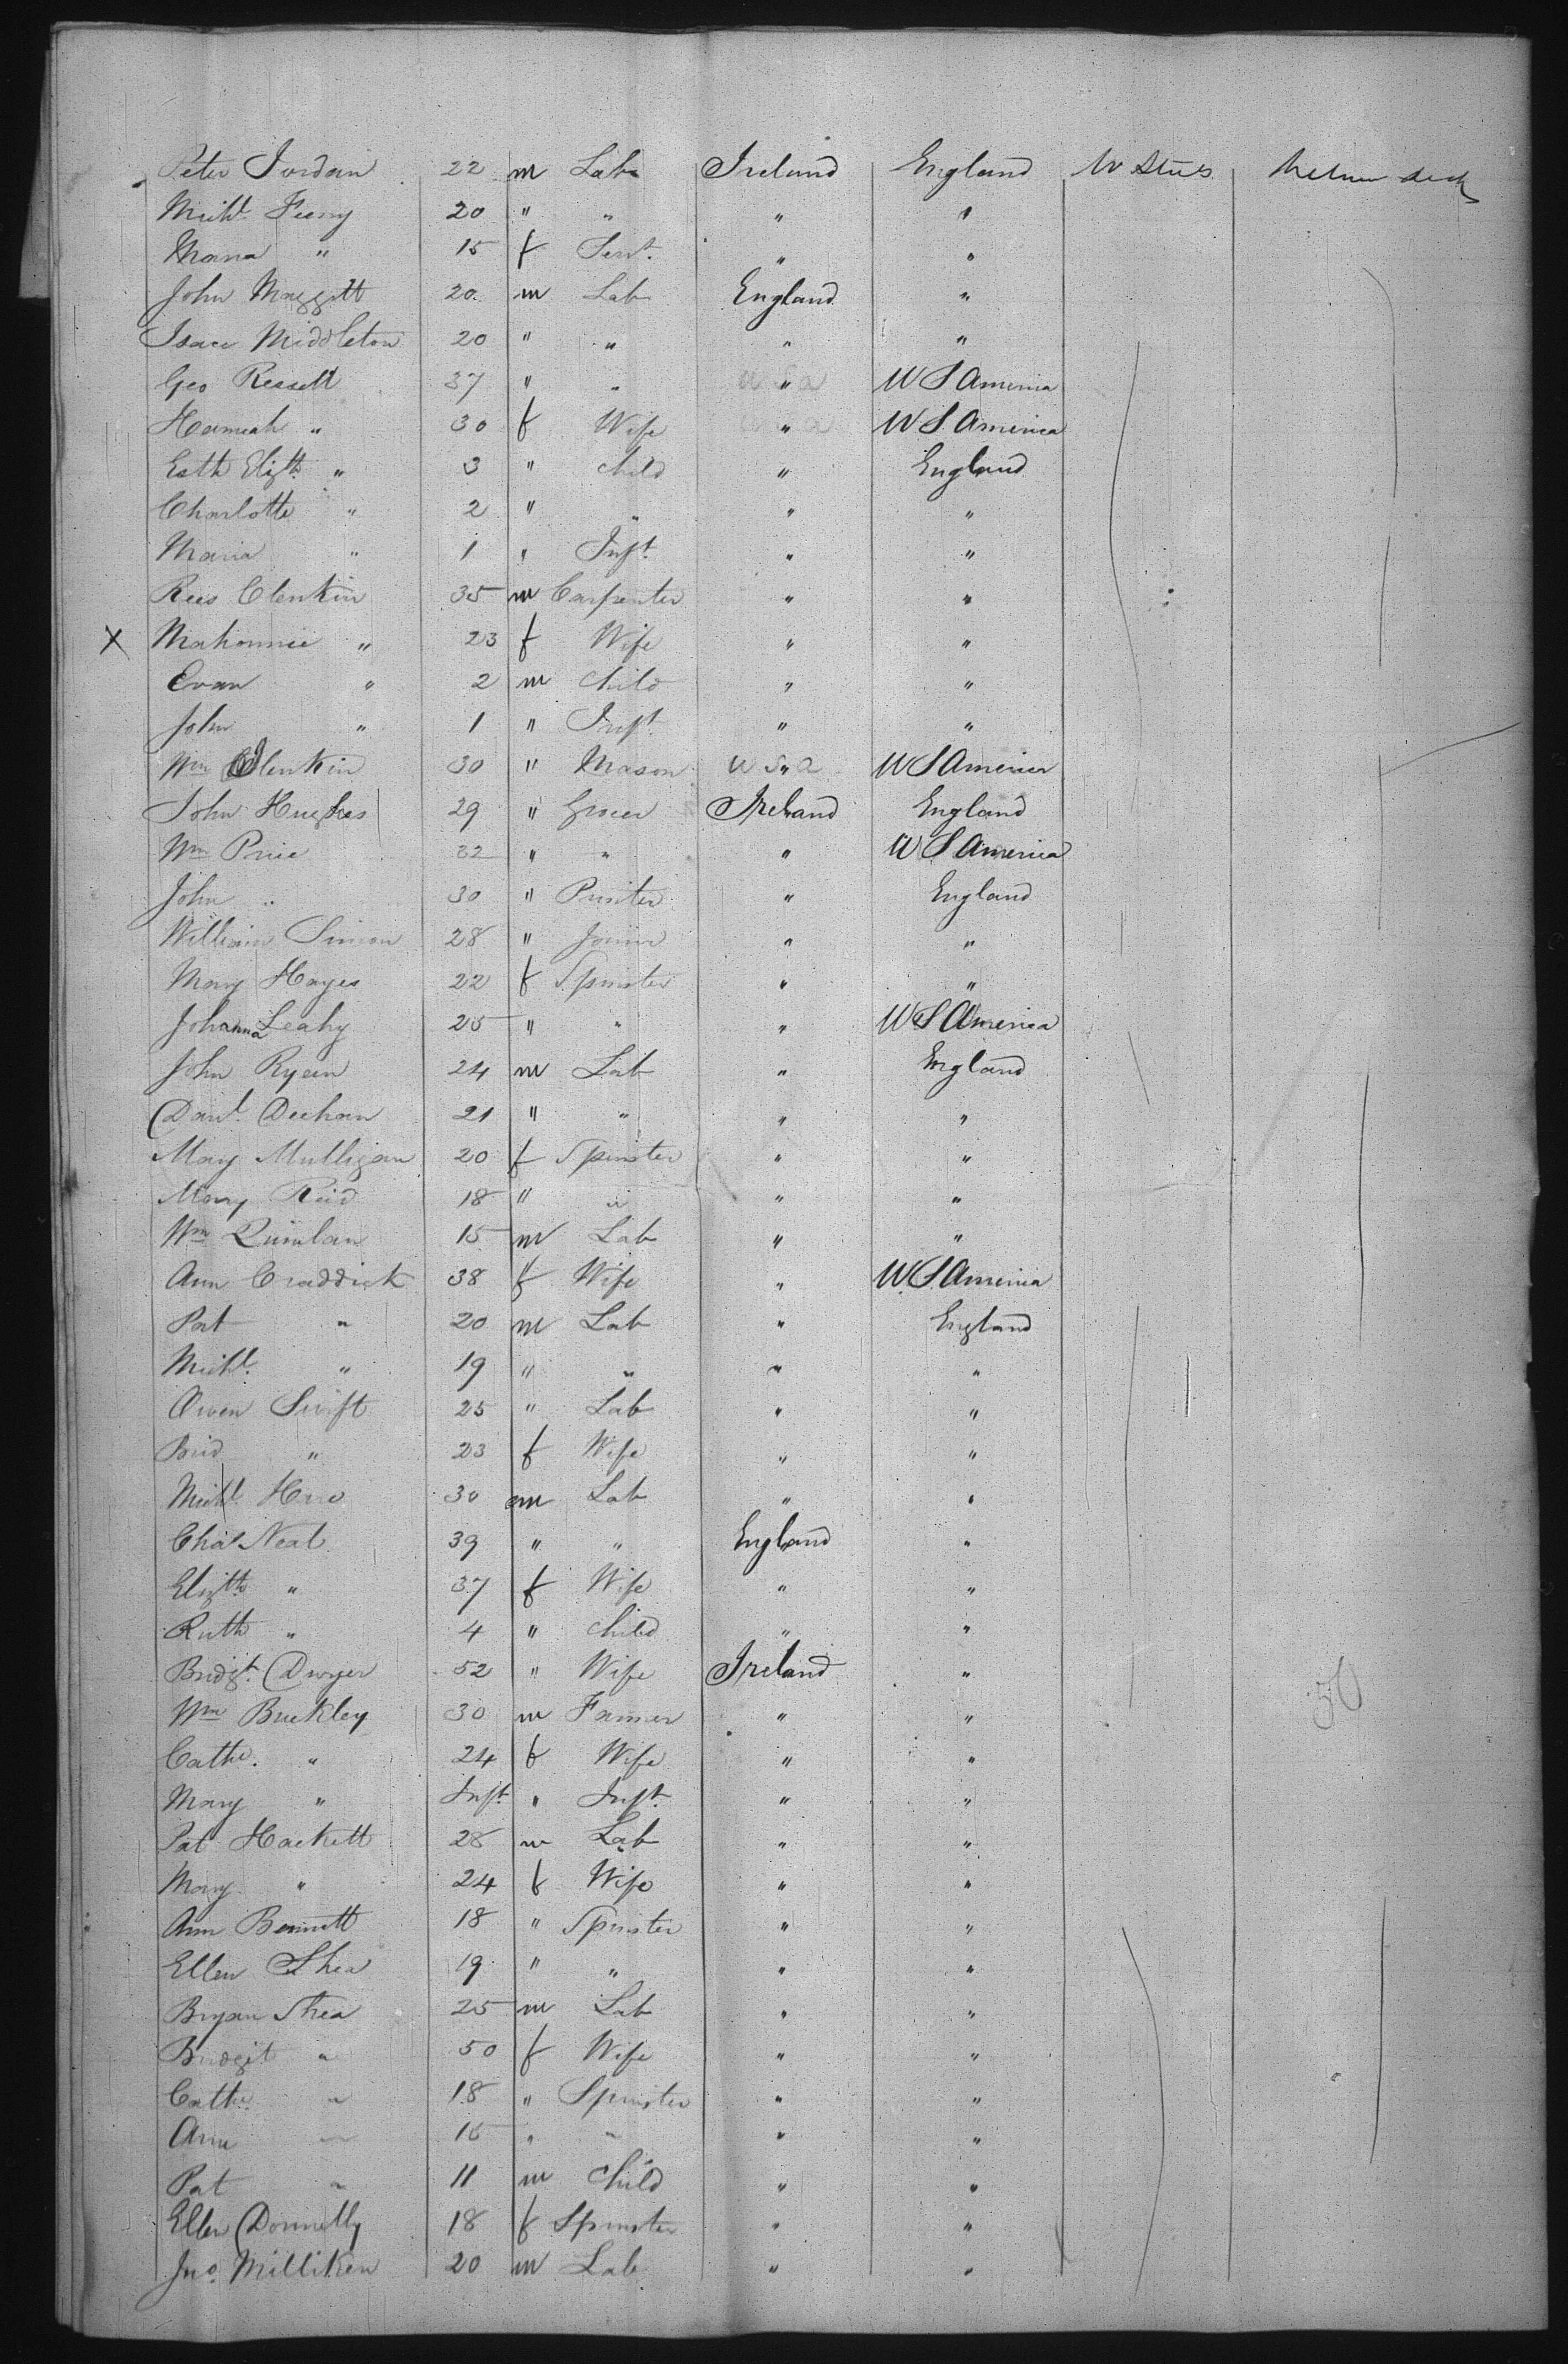 Peter Jordan 22 m Lab Ireland England U Stus Between deck
Michl. Feeny 20 " " " "
Maria " 15 f Servt. " "
John Maggott 20 m Lab England "
Isaac Middleton 20 " " " "
Geo Russell 37 " " " U S America
Hannah " 30 f Wife " U S America
Esth Elizth " 3 " child " England
Charlotte " 2 " " " "
Maria " 1 " Inft. " "
Rees Clenkin 35 m Carpenter " "
X " 23 f Wife " "
Evan " 2 m child " "
John " 1 " Inft. " "
Wm Clenkin 30 " Mason U S A U S America
John Hughes 29 " Grocer Ireland England
Wm Price 32 " " " U S America
John " 30 " Printer " England
William Simon 28 " Joiner " "
Mary Hayes 22 f Spinster " "
Johanna Leahy 25 " " " U S America
John Ryan 24 m Lab " England
Danl. Deehan 21 " " " "
Mary Mulligan 20 f Spinster " "
Mary Reid 18 " " " "
Wm Quinlan 15 m Lab " "
Ann Craddick 38 f Wife " U S America
Pat " 20 m Lab " England
Michl. " 19 " " " "
Owen Swift 25 " Lab " "
Brid " 23 f Wife " "
Michl. 30 m Lab " "
Chas Neal 39 " " England "
Elizth " 37 f Wife " "
Ruth " 4 " child " "
Bridgt. Dwyer 52 " Wife Ireland "
Wm Buckley 30 m Farmer " "
Cathe. " 24 f Wife " "
Mary " Inft. " Inft. " "
Pat Hackett 28 m Lab " "
Mary " 24 f Wife " "
Ann Bennett 18 " Spinster " "
Ellen Shea 19 " " " "
Bryan Shea 25 m Lab " "
Bridgit " 50 f Wife " "
Cathe. " 18 " Spinster " "
Ann " 15 " " " "
Pat " 11 m child " "
Ellen Donnelly 18 f Spinster " "
Jno. Milliken 20 m Lab " "
50